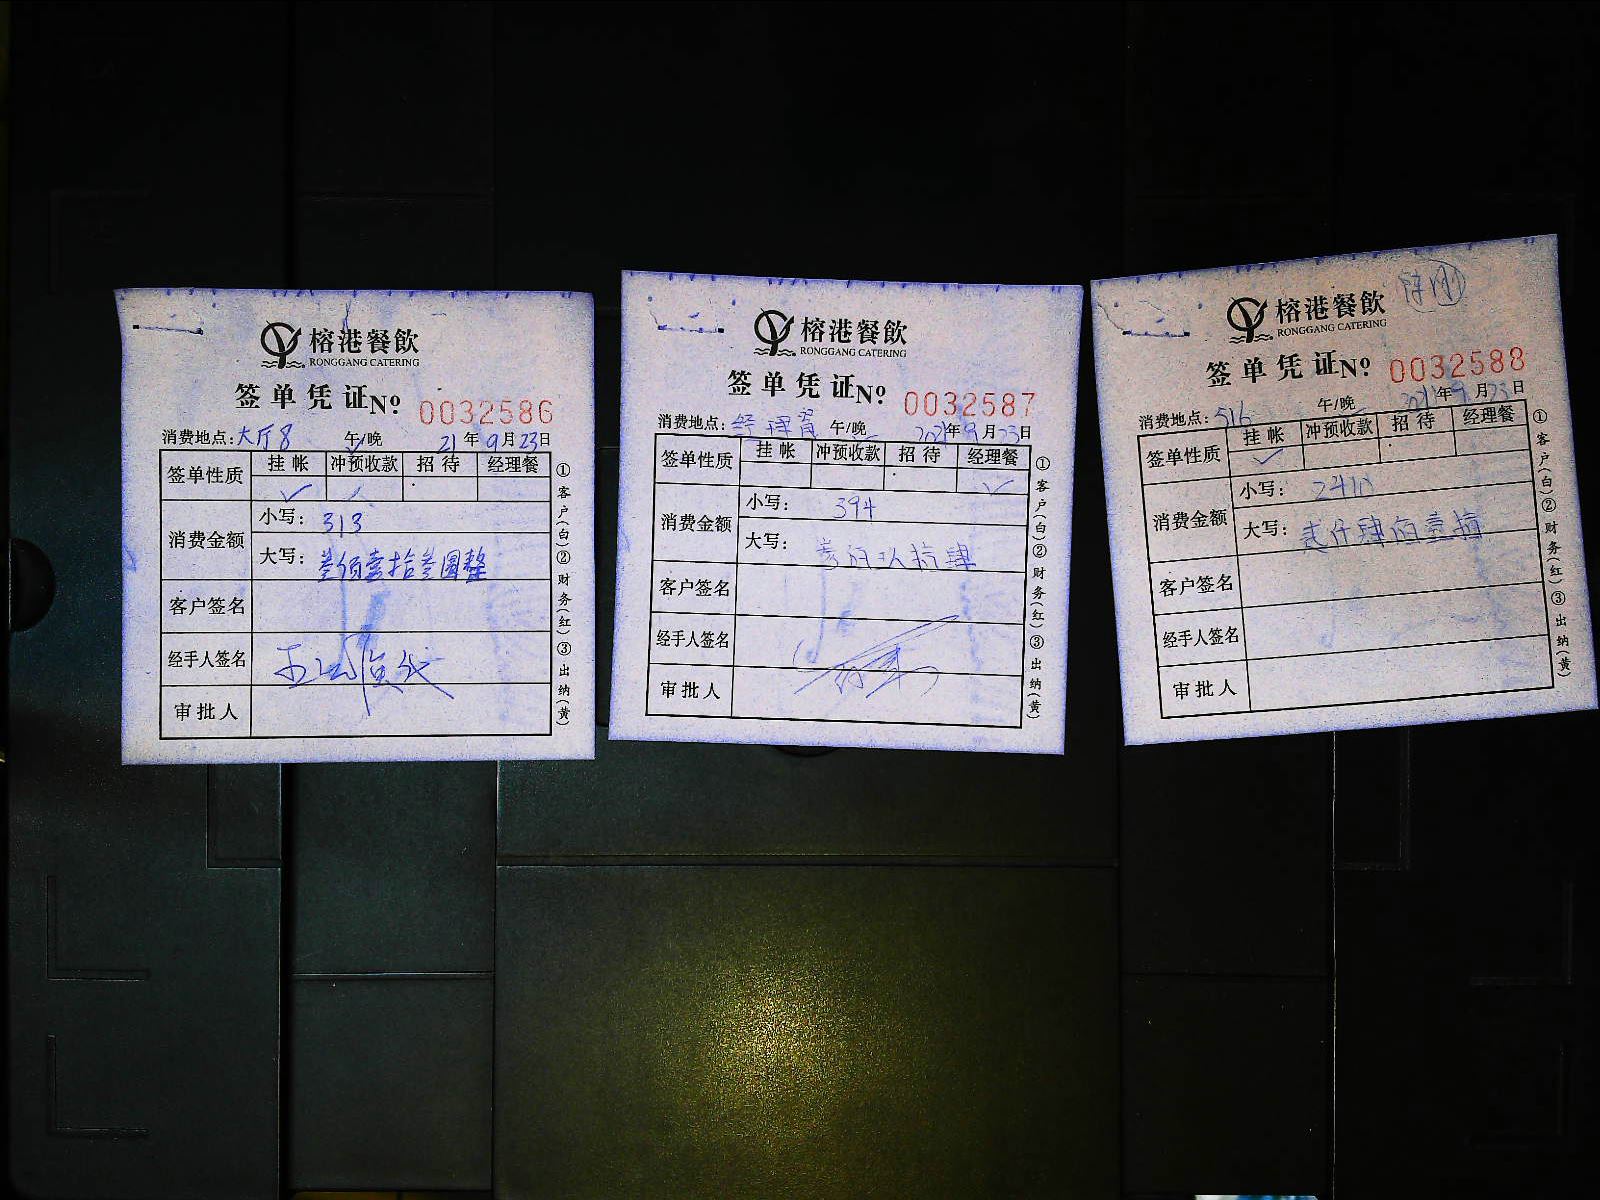 榕港餐飲
RONGGANG CATERING
签单凭证№ 0032586
消费地点：大厅8 午/晚 21年9月23日
签单性质 挂帐 冲预收款 招待 经理餐
✓
消费金额
小写：313
大写：叁佰壹拾叁圆整
客户签名
经手人签名
审批人
①客户(白)②财务(红)③出纳(黄)
榕港餐飲
RONGGANG CATERING
签单凭证№ 0032587
消费地点：经理餐 午/晚 2021年9月23日
签单性质 挂帐 冲预收款 招待 经理餐
✓
消费金额
小写：394
大写：叁佰玖拾肆
客户签名
经手人签名
审批人
①客户(白)②财务(红)③出纳(黄)
榕港餐飲
RONGGANG CATERING
签单凭证№ 0032588
消费地点：516 午/晚 2021年9月23日
签单性质 挂帐 冲预收款 招待 经理餐
✓
消费金额
小写：2410
大写：贰仟肆佰壹拾
客户签名
经手人签名
审批人
①客户(白)②财务(红)③出纳(黄)